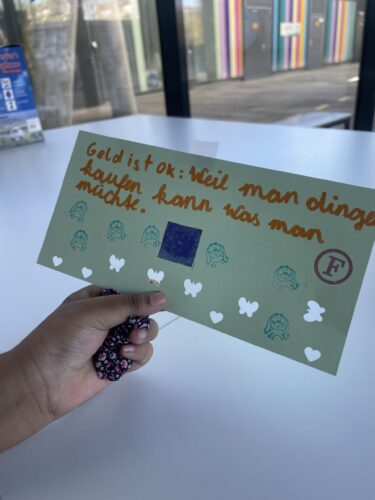 Geld ist ok: Weil man dinge
kaufen kann was man
müchte.
F